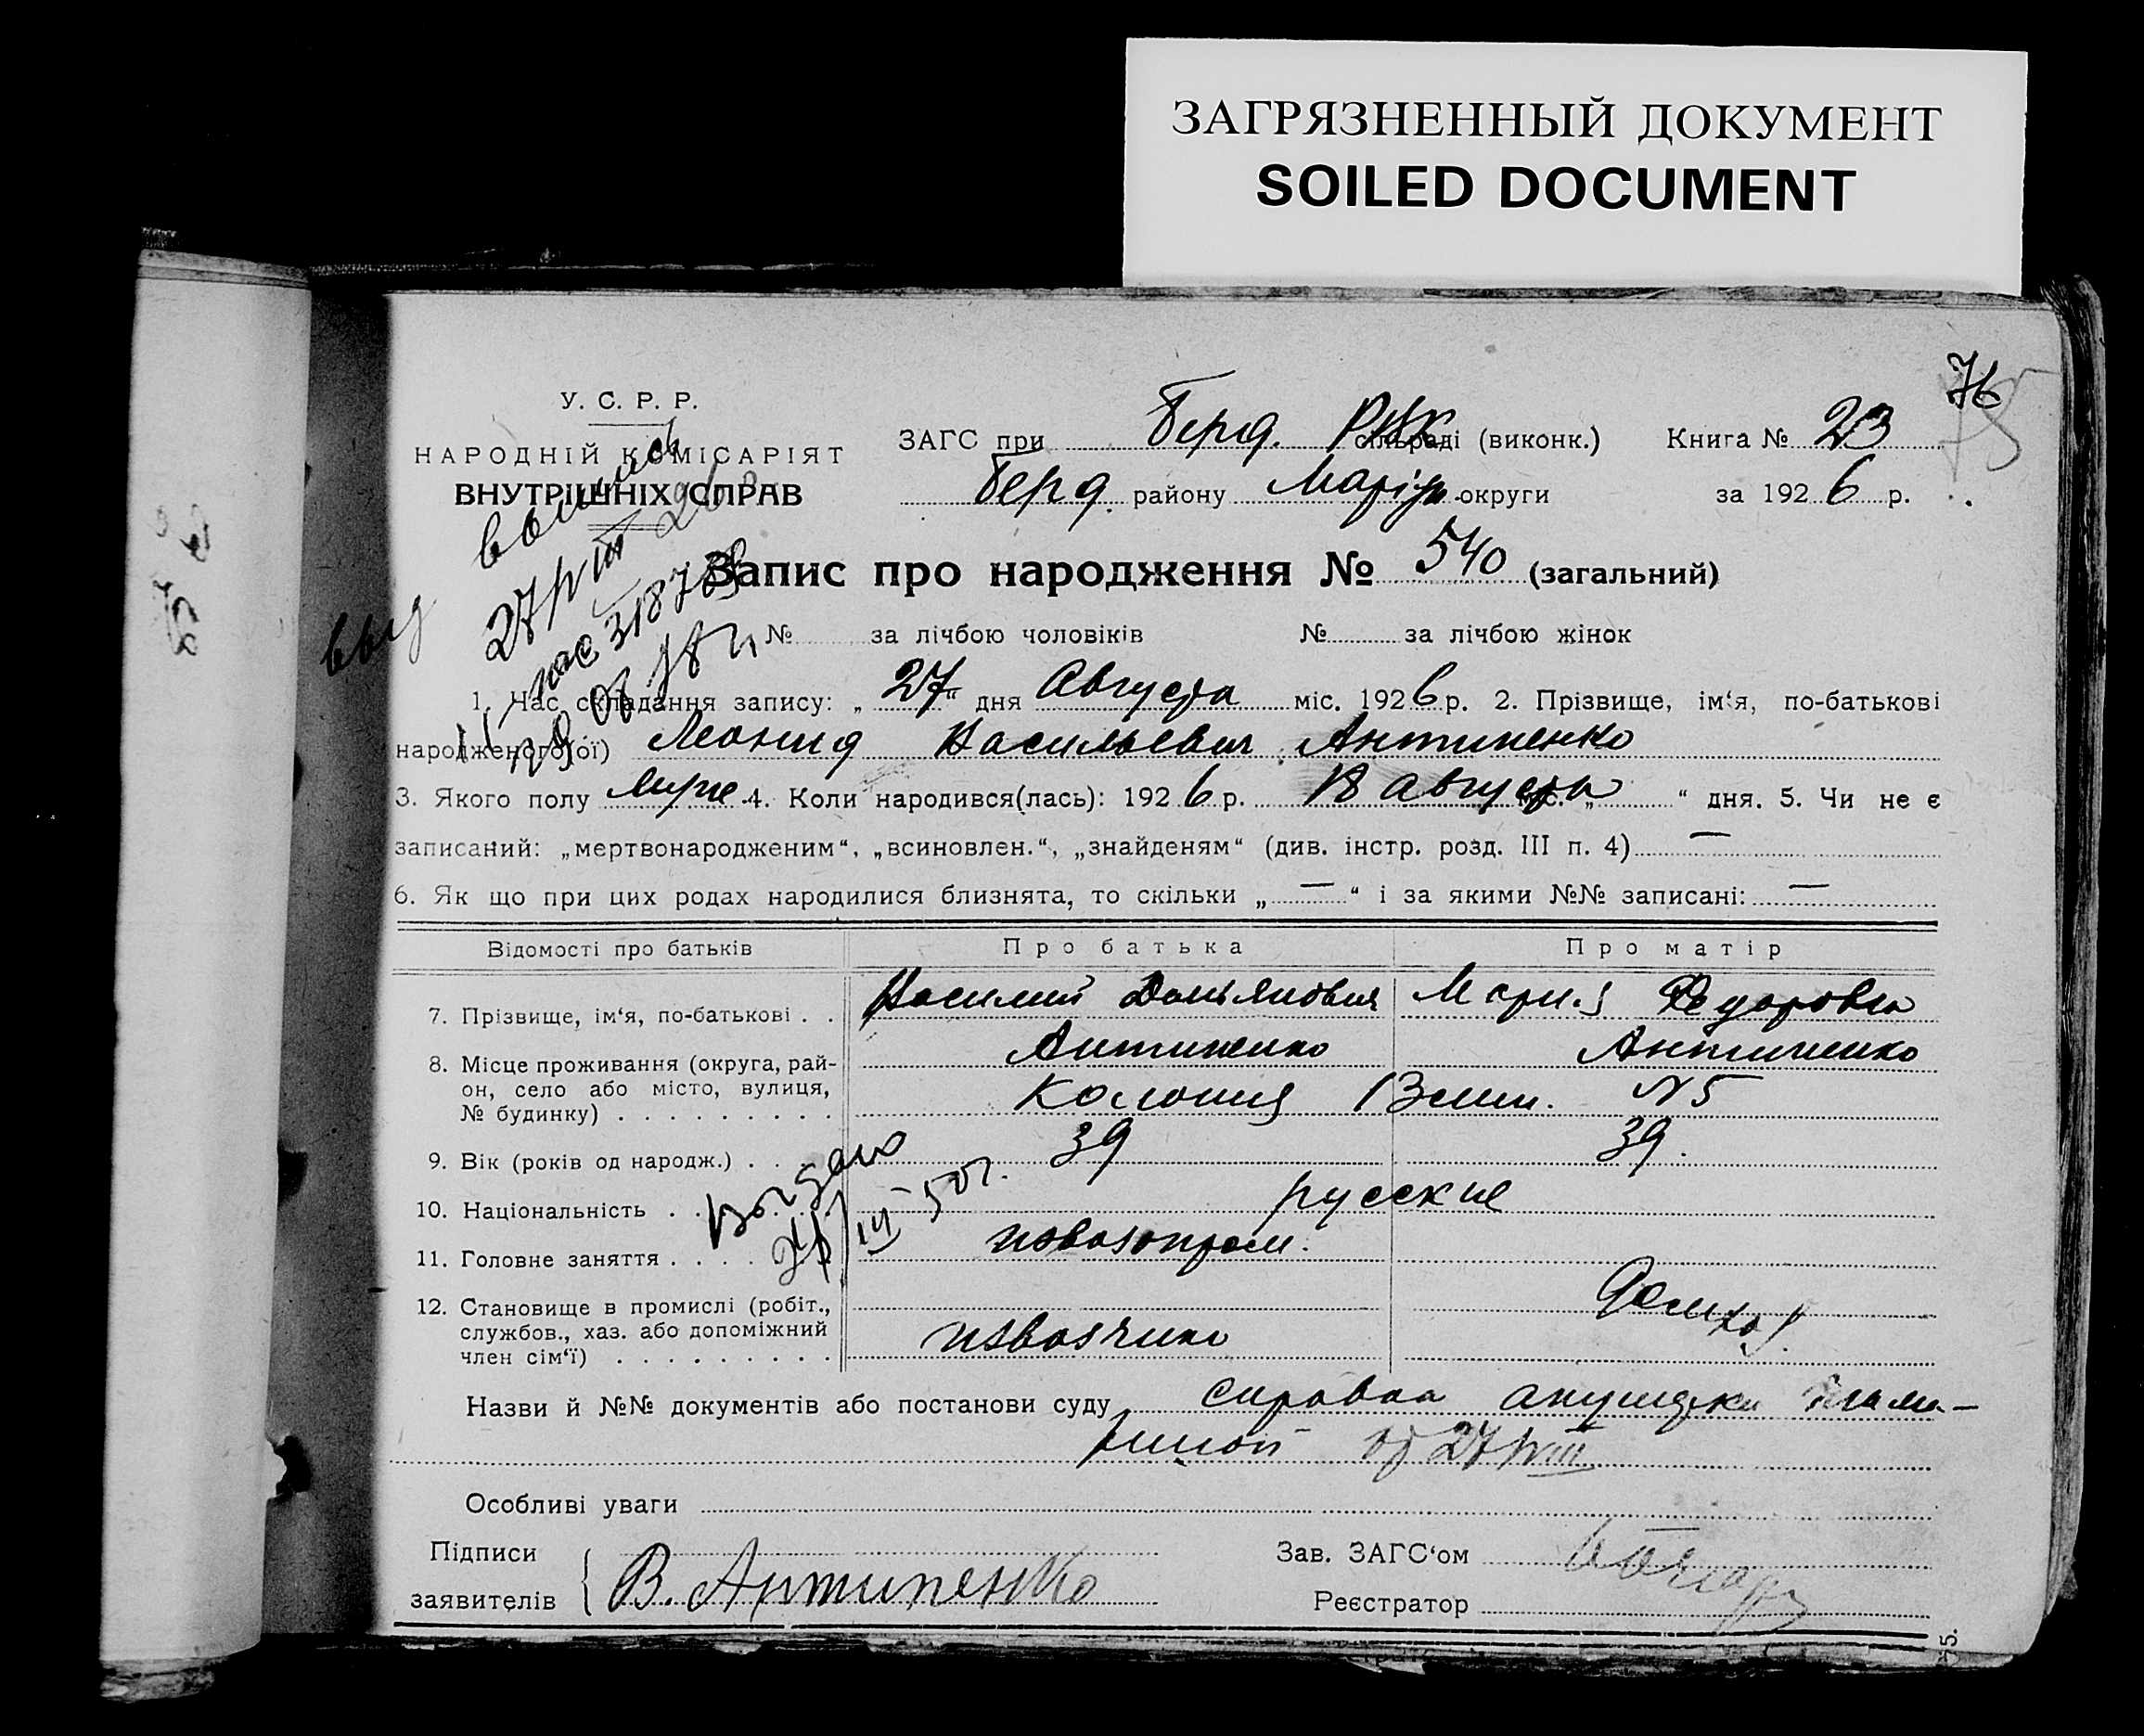 ЗАГРЯЗНЕННЫЙ ДОКУМЕНТ
SOILED DOCUMENT
76
У. С. Р. Р.
НАРОДНІЙ КОМІСАРІЯТ
ВНУТРІШНІХ СПРАВ
ЗАГС при Берд. РИК сільраді (виконк.) Книга № 23
Берд. району Маріуп. округи за 1926 р.
Запис про народження № 540 (загальний)
№ за лічбою чоловіків № за лічбою жінок
1. Час складання запису: „27“ дня Августа міс. 1926 р. 2. Прізвище, ім‘я, по-батькові
народженого(ої) Леонид Васильевич Антипенко
3. Якого полу муже 4. Коли народився(лась): 1926 р. 18 августа міс. „ “ дня. 5. Чи не є
записаний: „мертвонародженим“, „всиновлен.“, „знайденям“ (див. інстр. розд. III п. 4) —
6. Як що при цих родах народилися близнята, то скільки „—“ і за якими №№ записані: —
Відомості про батьків Про батька Про матір
7. Прізвище, ім‘я, по-батькові . . Василий Демьянович Мария Федоровна
Антипенко Антипенко
8. Місце проживання (округа, рай-
он, село або місто, вулиця,
№ будинку) . . . . . . . . . Колония 13 № 5
9. Вік (років од народж.) . . 39 39.
10. Національність . . русские
11. Головне заняття . . . . извозопром.
12. Становище в промислі (робіт.,
службов., хаз. або допоміжний
член сім‘ї) . . . . . . . . . извозчик
Домхоз.
Выдано
III 50 г.
Назви й №№ документів або постанови суду справка акушерки
от 27/VIII
Особливі уваги
Підписи
заявителів В. Антипенко
Зав. ЗАГС‘ом
Реєстратор